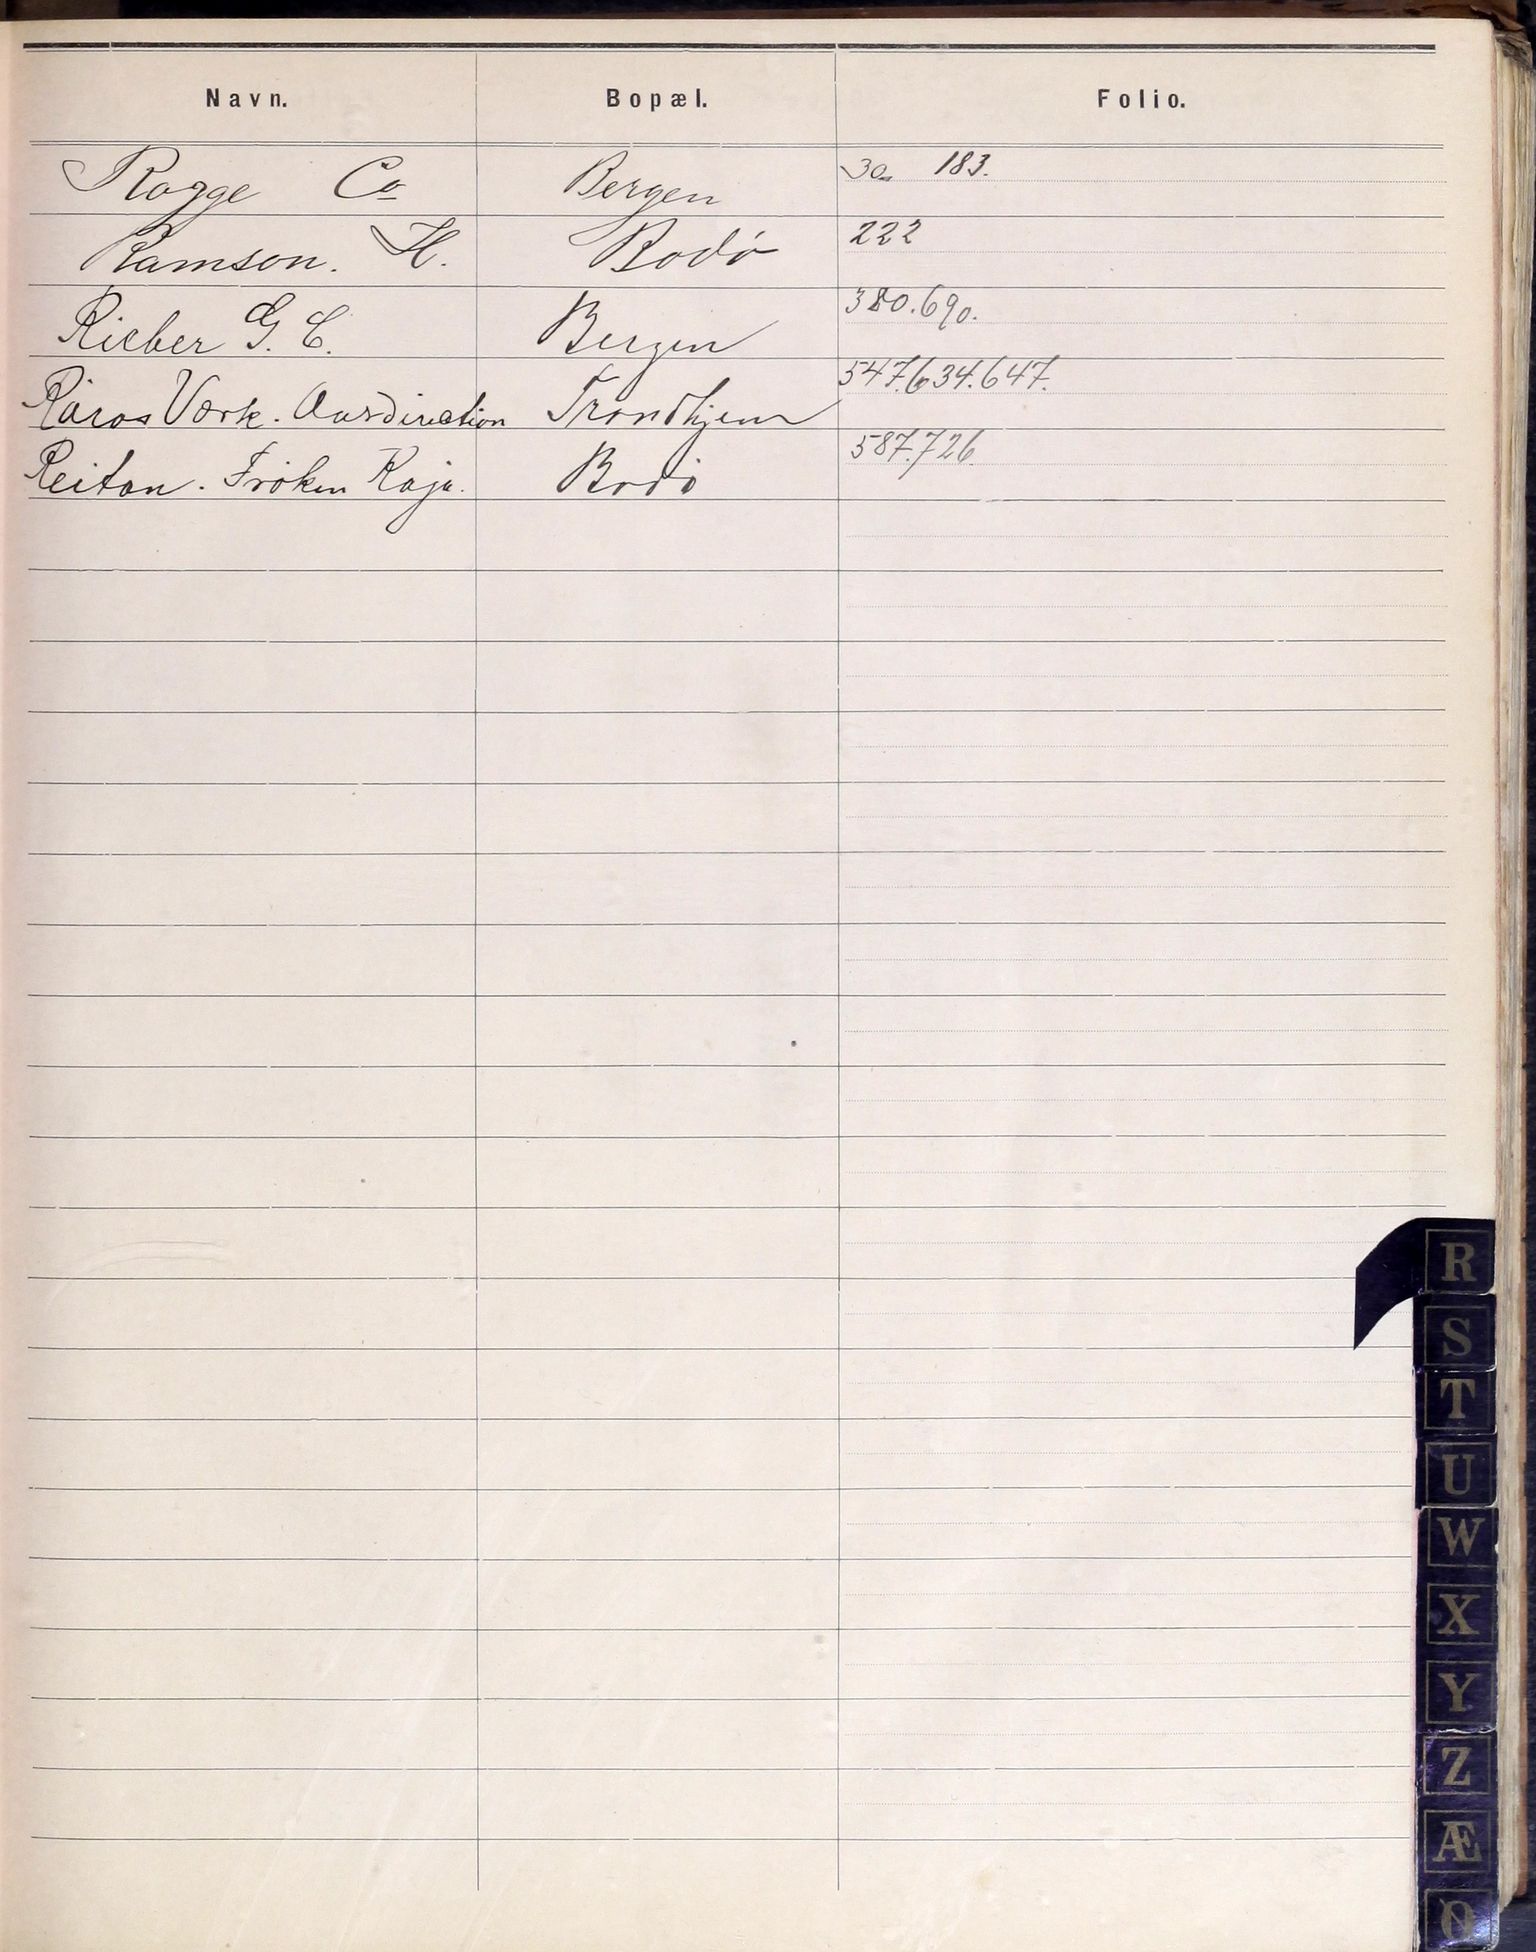 Navn. Bopæl. Folio.
Rogge Co Bergen 30 183.
Ramson. H. Bodö 222
Rieber G. C. Bergen 380.690.
Röros Værk. Direction Trondhjem 547.634.647.
Reitan. Fröken Kaja. Bodö 587.726.
R
S
T
U
W
X
Y
Z
Æ
Ø